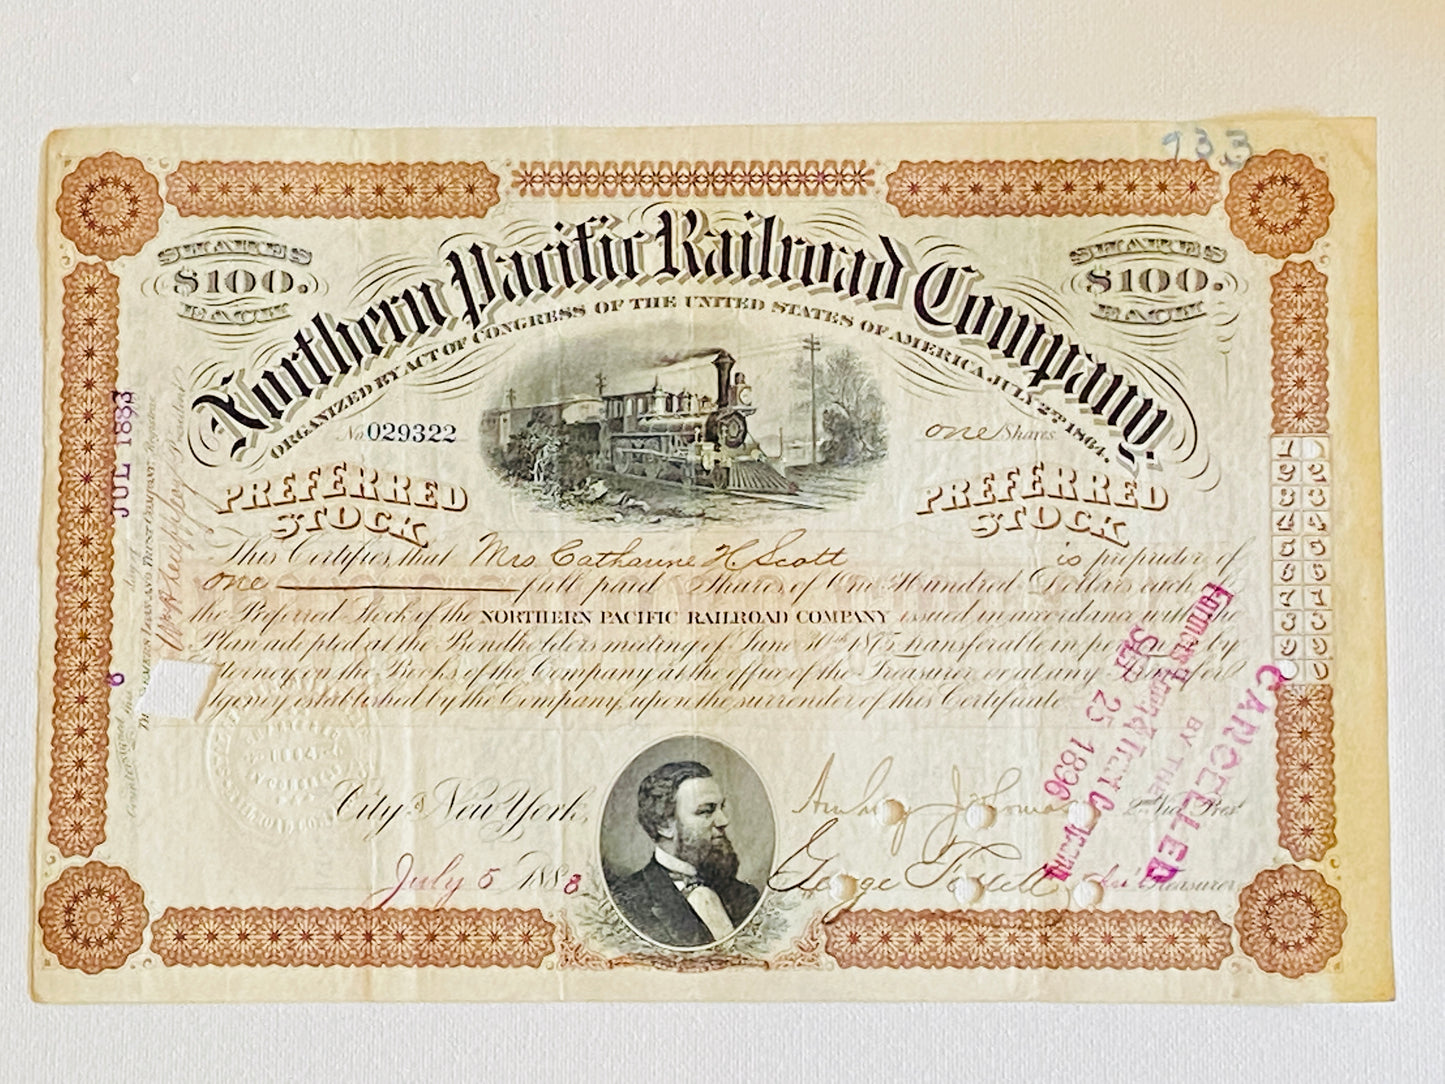 933
SHARES
$100.
EACH
Northern Pacific Railroad Company.
SHARES
$100.
EACH
ORGANIZED BY ACT OF CONGRESS OF THE UNITED STATES OF AMERICA JULY 2ND 1864.
No. 029322
one Shares
PREFERRED
STOCK
PREFERRED
STOCK
This Certifies, that Mrs Catharine H. Scott is proprietor of
one full paid Shares of One Hundred Dollars each
the Preferred Stock of the NORTHERN PACIFIC RAILROAD COMPANY issued in accordance with the
Plan adopted at the Bondholders meeting of June 30th 1875 transferable in person or by
Attorney, on the Books of the Company at the office of the Treasurer, or at any Transfer
Agency established by the Company, upon the surrender of this Certificate
City of New York,
July 5 1883
George
Treasurer
Countersigned this 6 day of JUL 1883
LOAN AND TRUST COMPANY,
President
1 2 3 4 5 6 7 8 9 0
1 2 3 4 5 6 7 8 9 0
CANCELLED
BY THE
Farmers Loan & Trust Company
SEP 25 1896